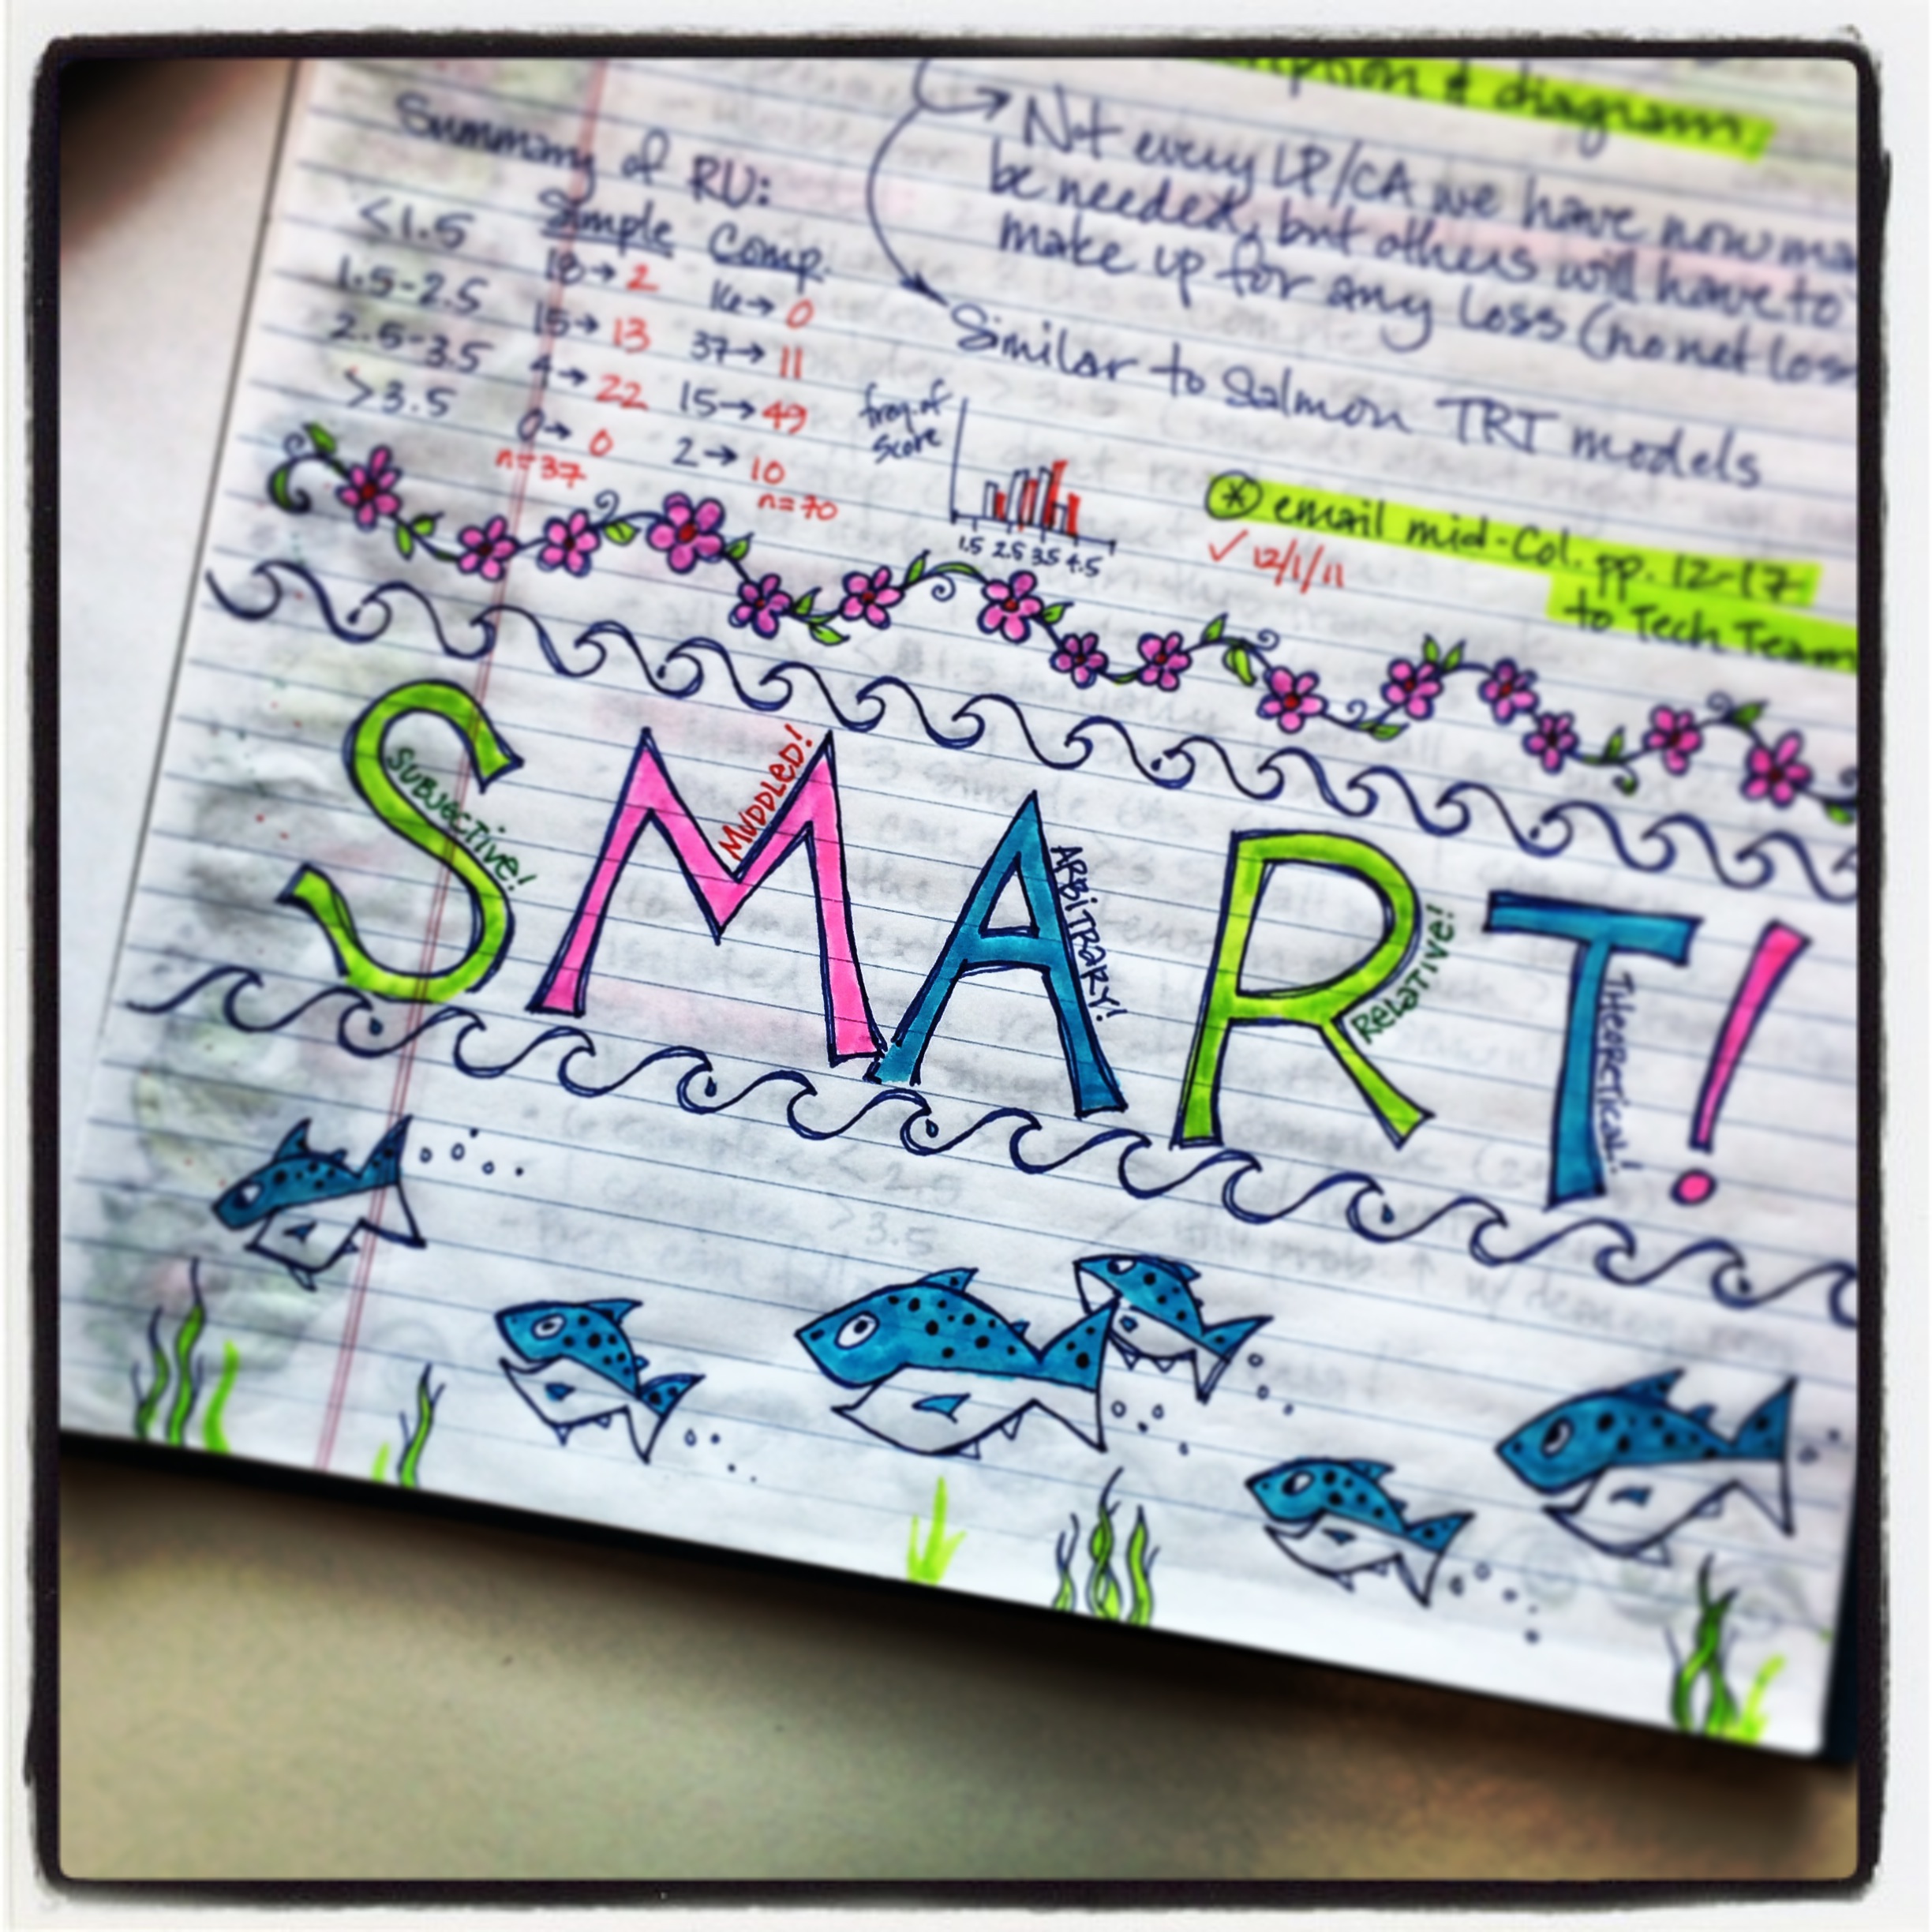 ption & diagram.
Summary of RU:
Simple Comp.
<1.5 18→2 14→0
1.5-2.5 15→13 37→11
2.5-3.5 4→22 15→49
>3.5 0→0 2→10
n=37 n=70
→ Not every LP/CA we have now ma
be needed, but others will have to
make up for any loss (no net loss
Similar to Salmon TRT models
freq of
score
1.5 2.5 3.5 4.5
* email mid-Col. pp. 12-17
✓ 12/1/11
to Tech Team
SMART!
SUBJECTIVE!
MUDDLED!
ARBITRARY!
RELATIVE!
THEORETICAL!